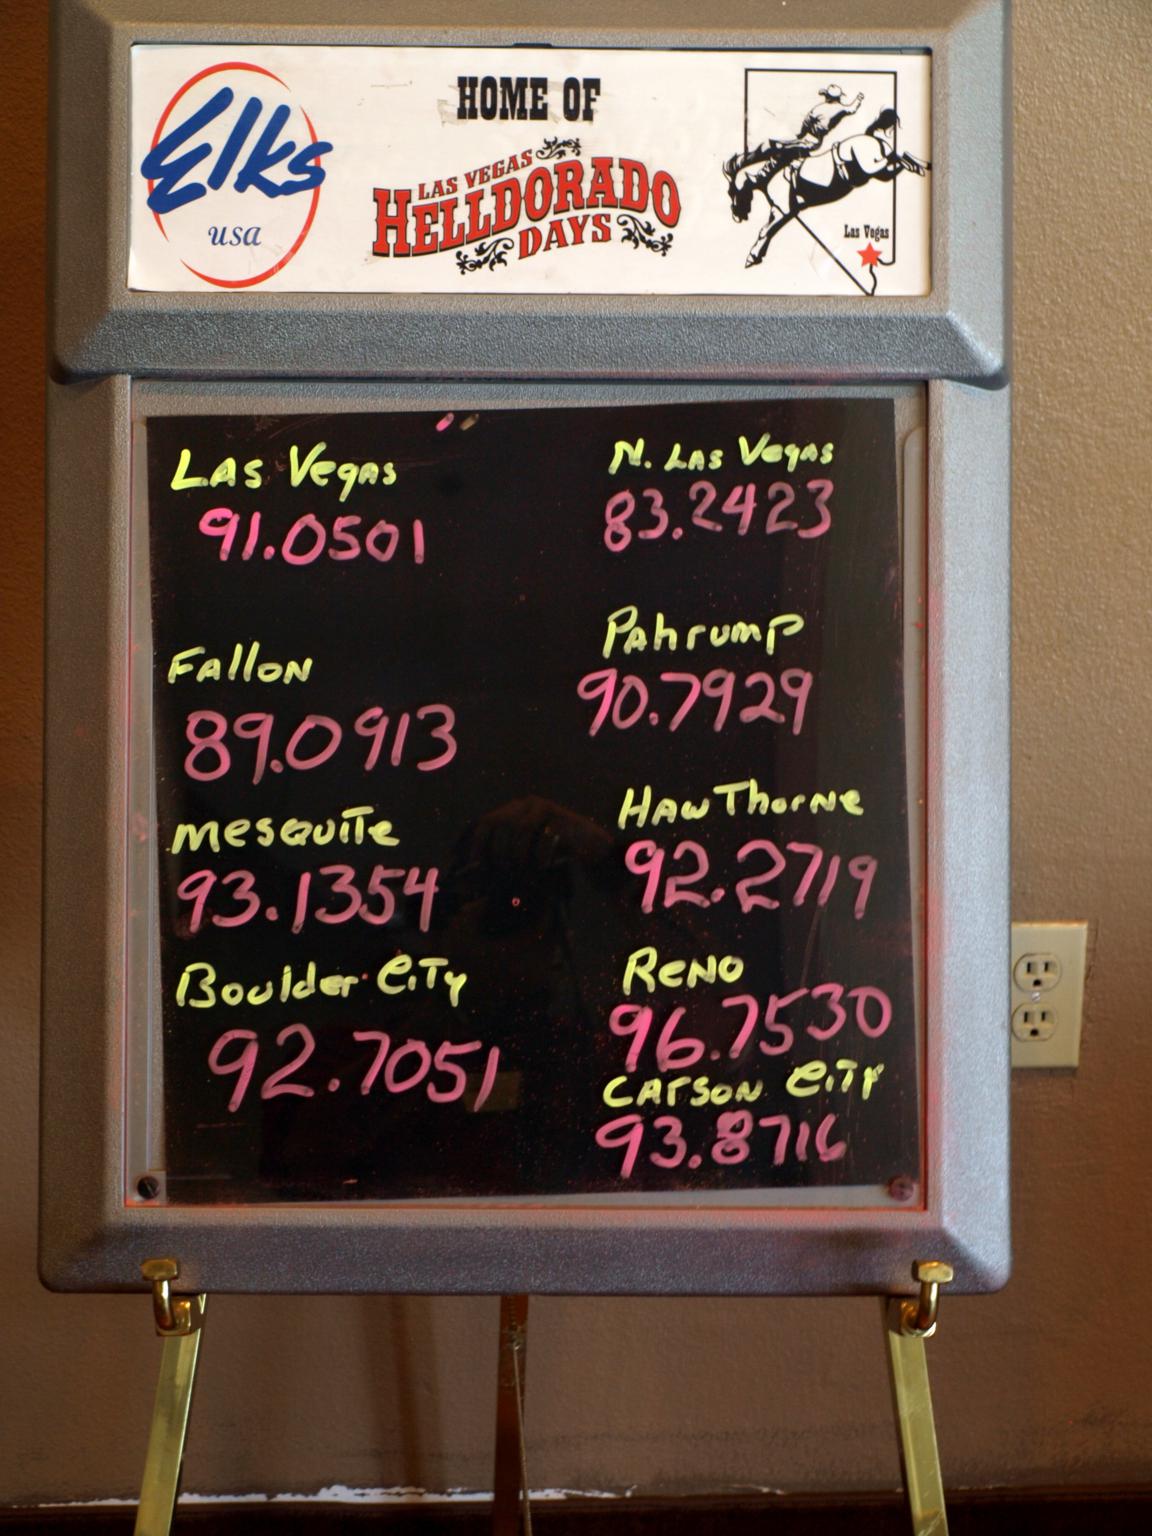 Elks
usa
HOME OF
LAS VEGAS
HELLDORADO
DAYS
Las Vegas
Las Vegas
91.0501
N. Las Vegas
83.2423
Fallon
89.0913
Pahrump
90.7929
Mesquite
93.1354
Hawthorne
92.2719
Boulder City
92.7051
Reno
96.7530
Carson City
93.8716